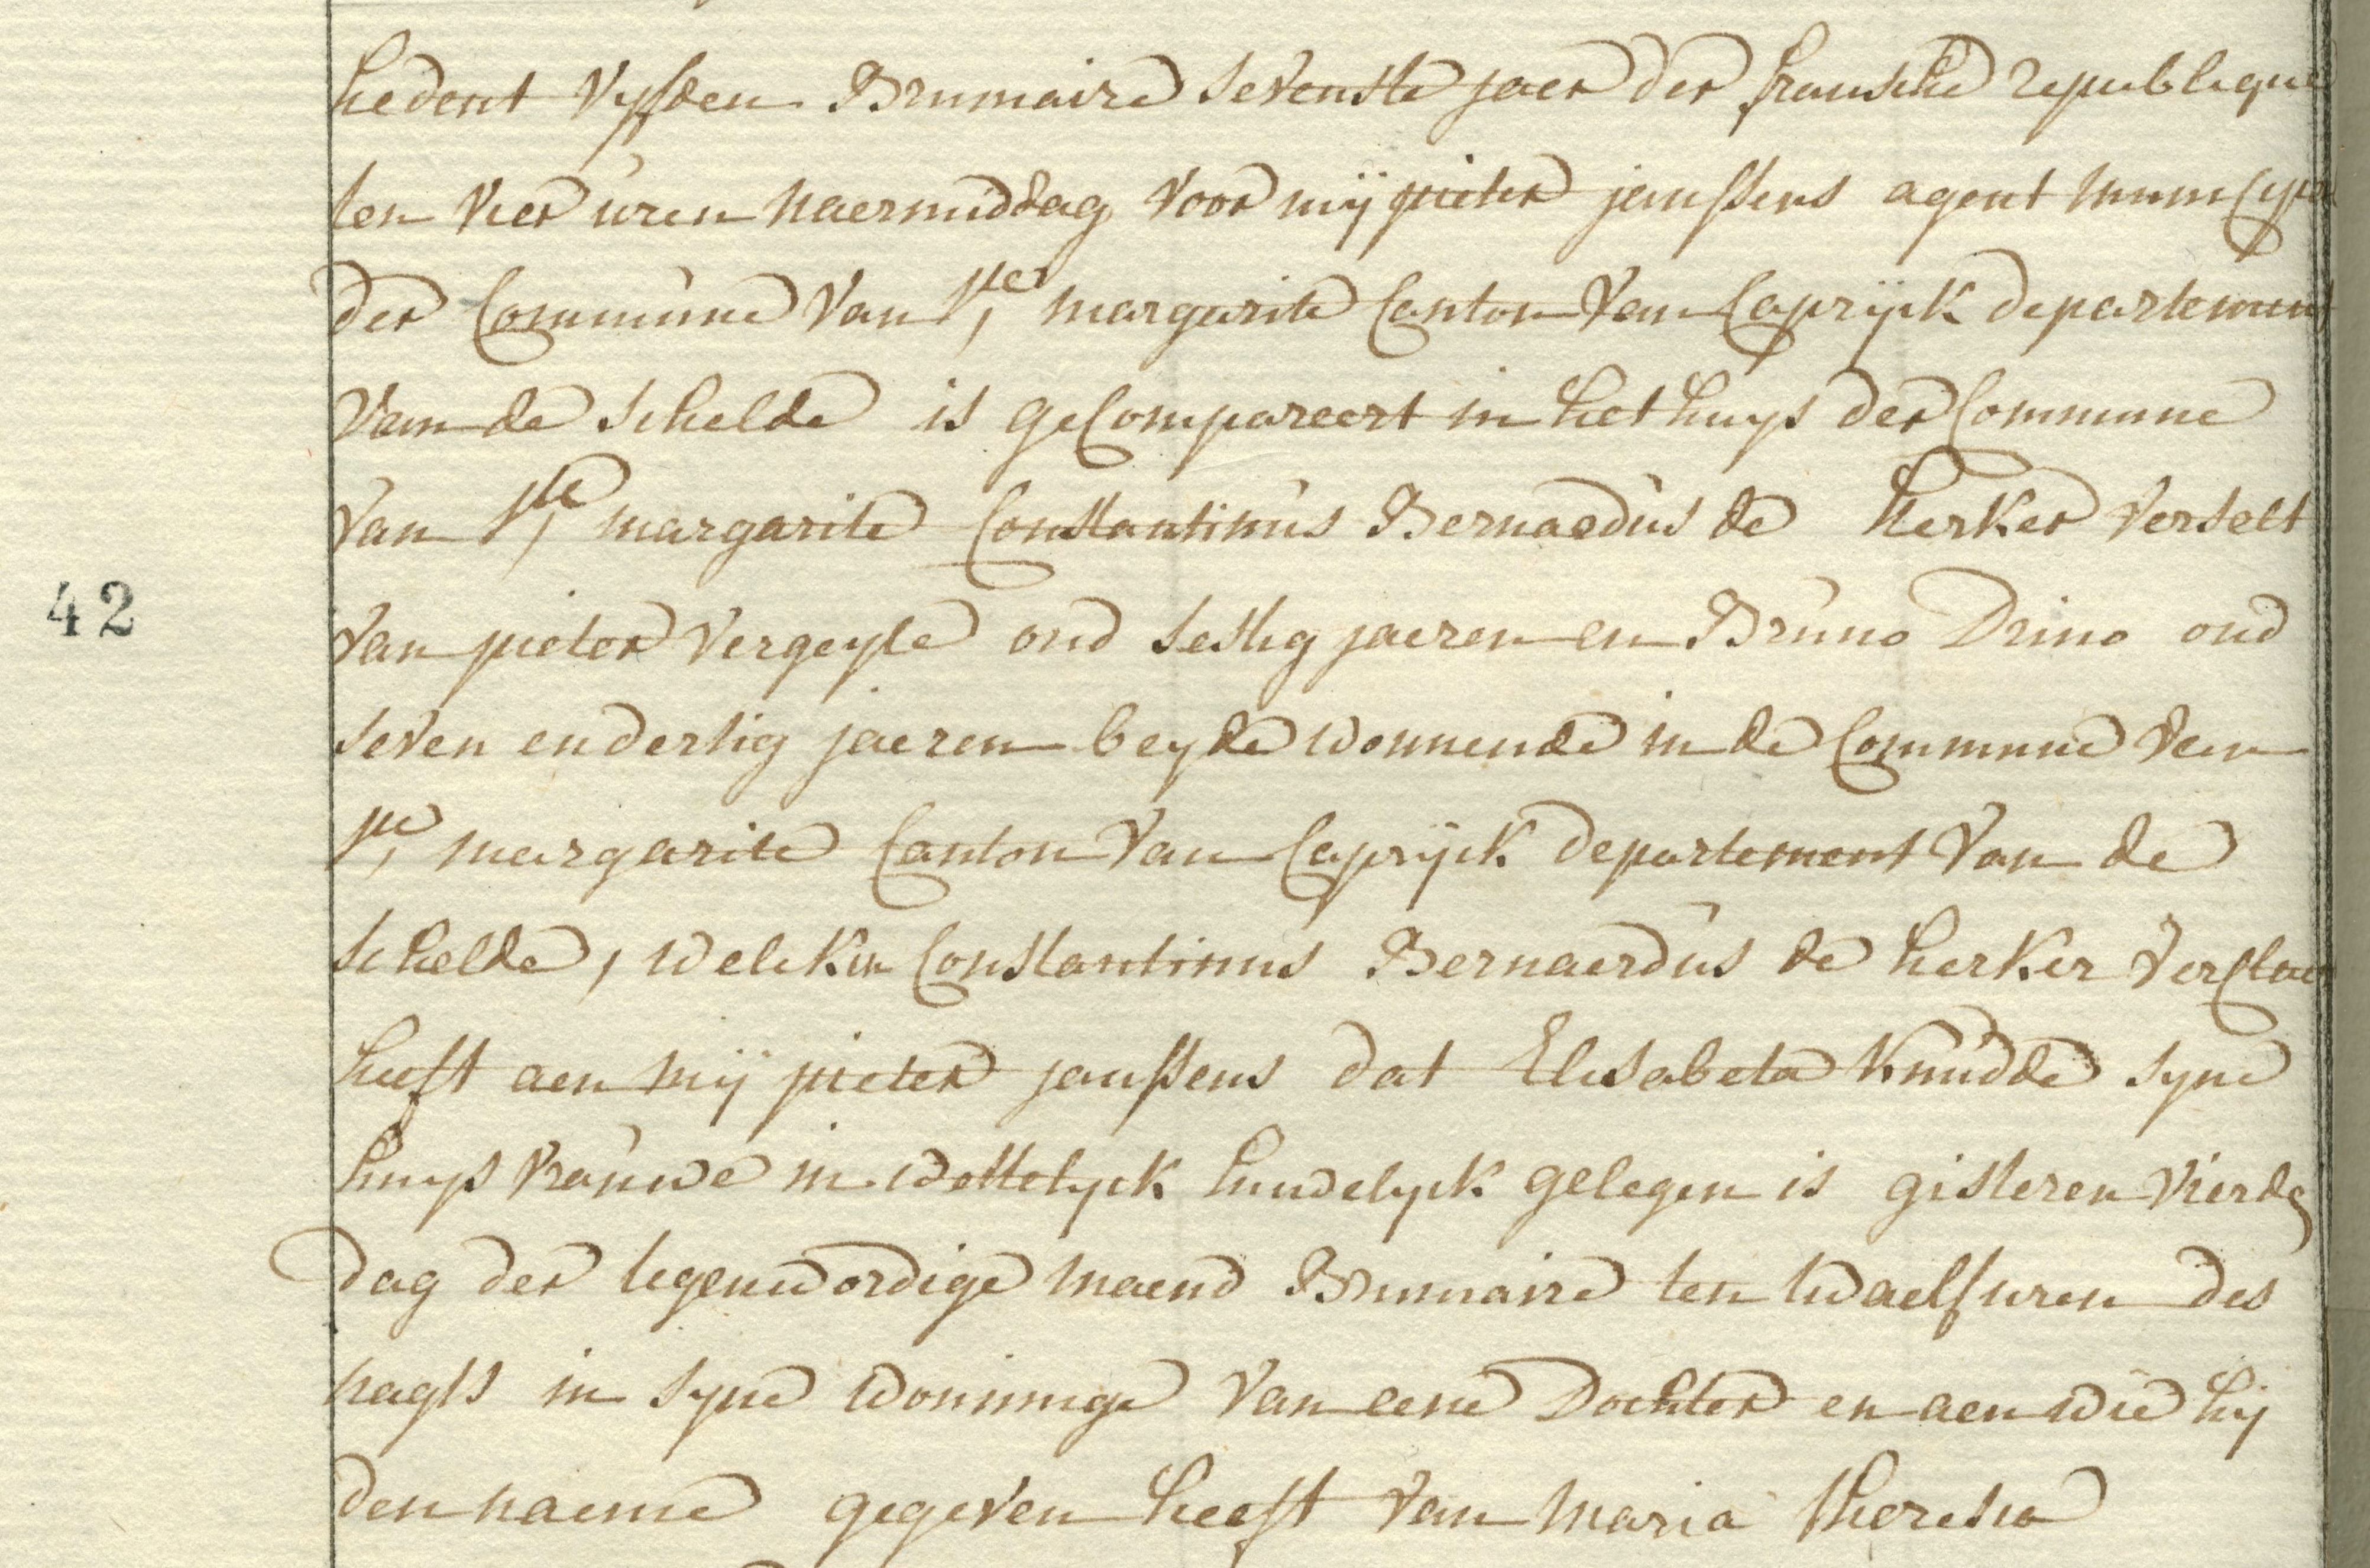 hedent vyfden Brumaire sevenste jaer der fransche republique
ten vier uren naermiddag voor mij pieter janssens agent municipa
der Commune van Ste margarite Canton van Caprijck departement
van de schelde is geCompareert in het huys der Commune
van Ste margarite Constantinus Bernaedus de kerker verselt
van pieter vergeyle oud sestig jaeren en Bruno Drino oud
42
seven en dertig jaeren beyde wonnende in de Commune van
Ste margarite Canton van Caprijck departement van de
schelde, welcken Constantinus Bernaerdus de kerker verClaer
heeft aen mij pieter janssens dat Elisabeta Knudde syne
huys vrauwe in wettelyck huwelyck gelegen is gisteren vierde
dag der tegenwordige maend Brumaire ten twaelf uren des
nagts in syne wonninge van eene Dochter en aen wie hij
den naeme gegeven heeft van maria theresia